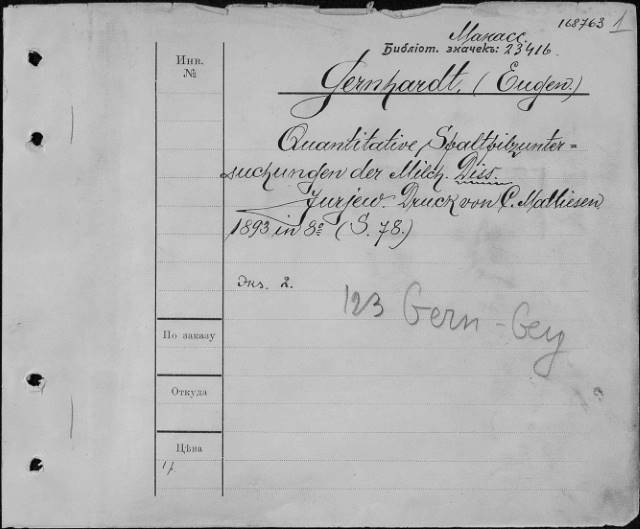 168763 1
Манасс.
Библіот. значекъ: 23416.
Инв.
№
Gernhardt, (Eugen.)
Quantitative Spaltpilzunter=
suchungen der Milch. Diss.
Jurjew. Druck von C. Mattiesen
1893 in 8º (S. 78.)
Экз. 2.
123 Gern - Gey
По заказу
Откуда
Цѣна